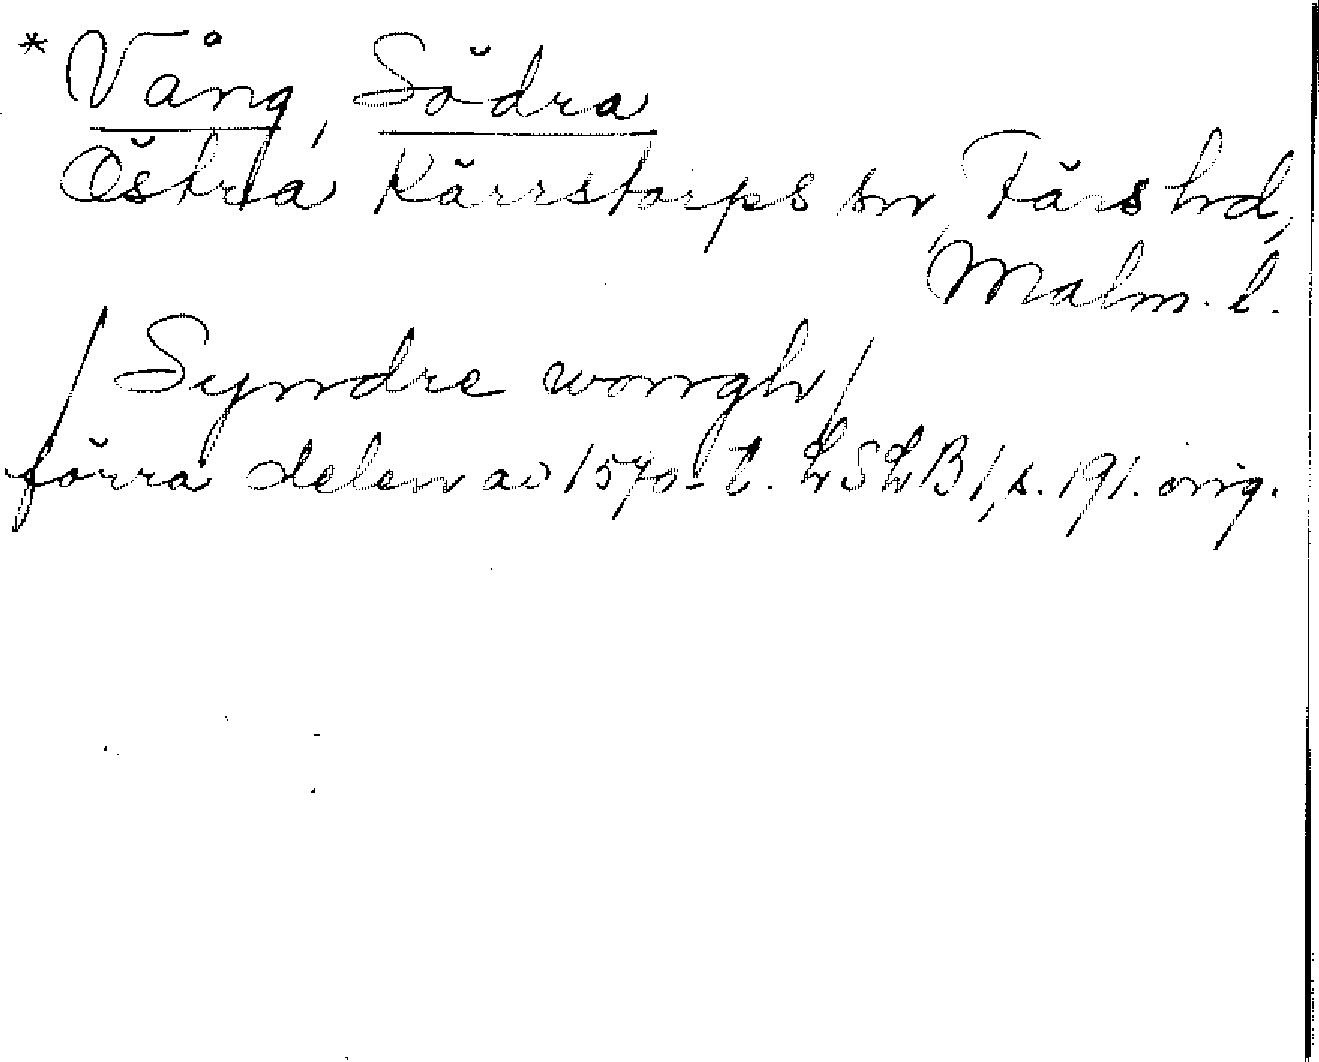 * Vång, Södra
Östra Kärrstorps sn, Färs hd,
Malm. l.
/Syndre wongh/
förra delen av 1570-t. LSLB 1, s. 191. orig.